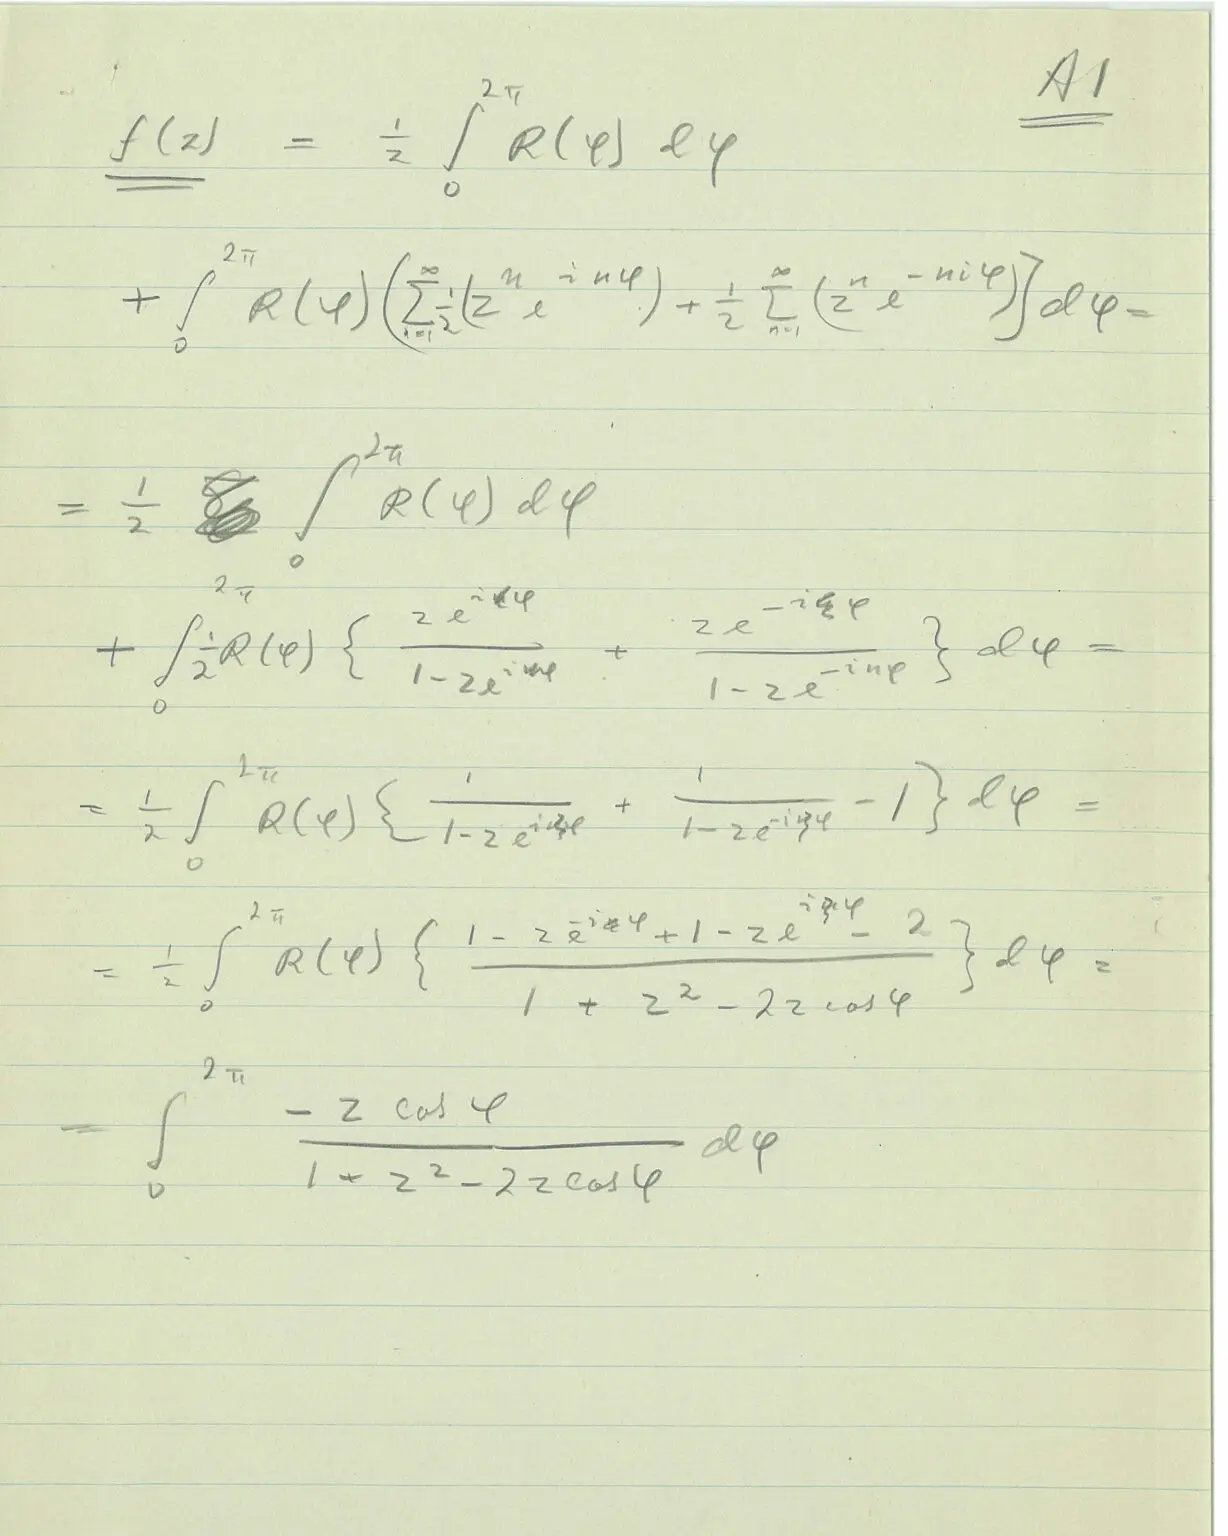 A1
f(z) = 1/2 ∫₀^{2π} R(φ) dφ
+ ∫₀^{2π} R(φ) ( ∑_{n=1}^∞ 1/2 (z^n e^{inφ}) + 1/2 ∑_{n=1}^∞ (z^n e^{-niφ}) ] dφ =
= 1/2 ∫₀^{2π} R(φ) dφ
+ ∫₀^{2π} 1/2 R(φ) { z e^{iφ} / 1 - z e^{iφ} + z e^{-iφ} / 1 - z e^{-inφ} } dφ =
= 1/2 ∫₀^{2π} R(φ) { 1 / 1 - z e^{iφ} + 1 / 1 - z e^{-iφ} - 1 } dφ =
= 1/2 ∫₀^{2π} R(φ) { 1 - z e^{-iφ} + 1 - z e^{iφ} - 2 / 1 + z² - 2z cos φ } dφ =
= ∫₀^{2π} - z cos φ / 1 + z² - 2z cos φ dφ